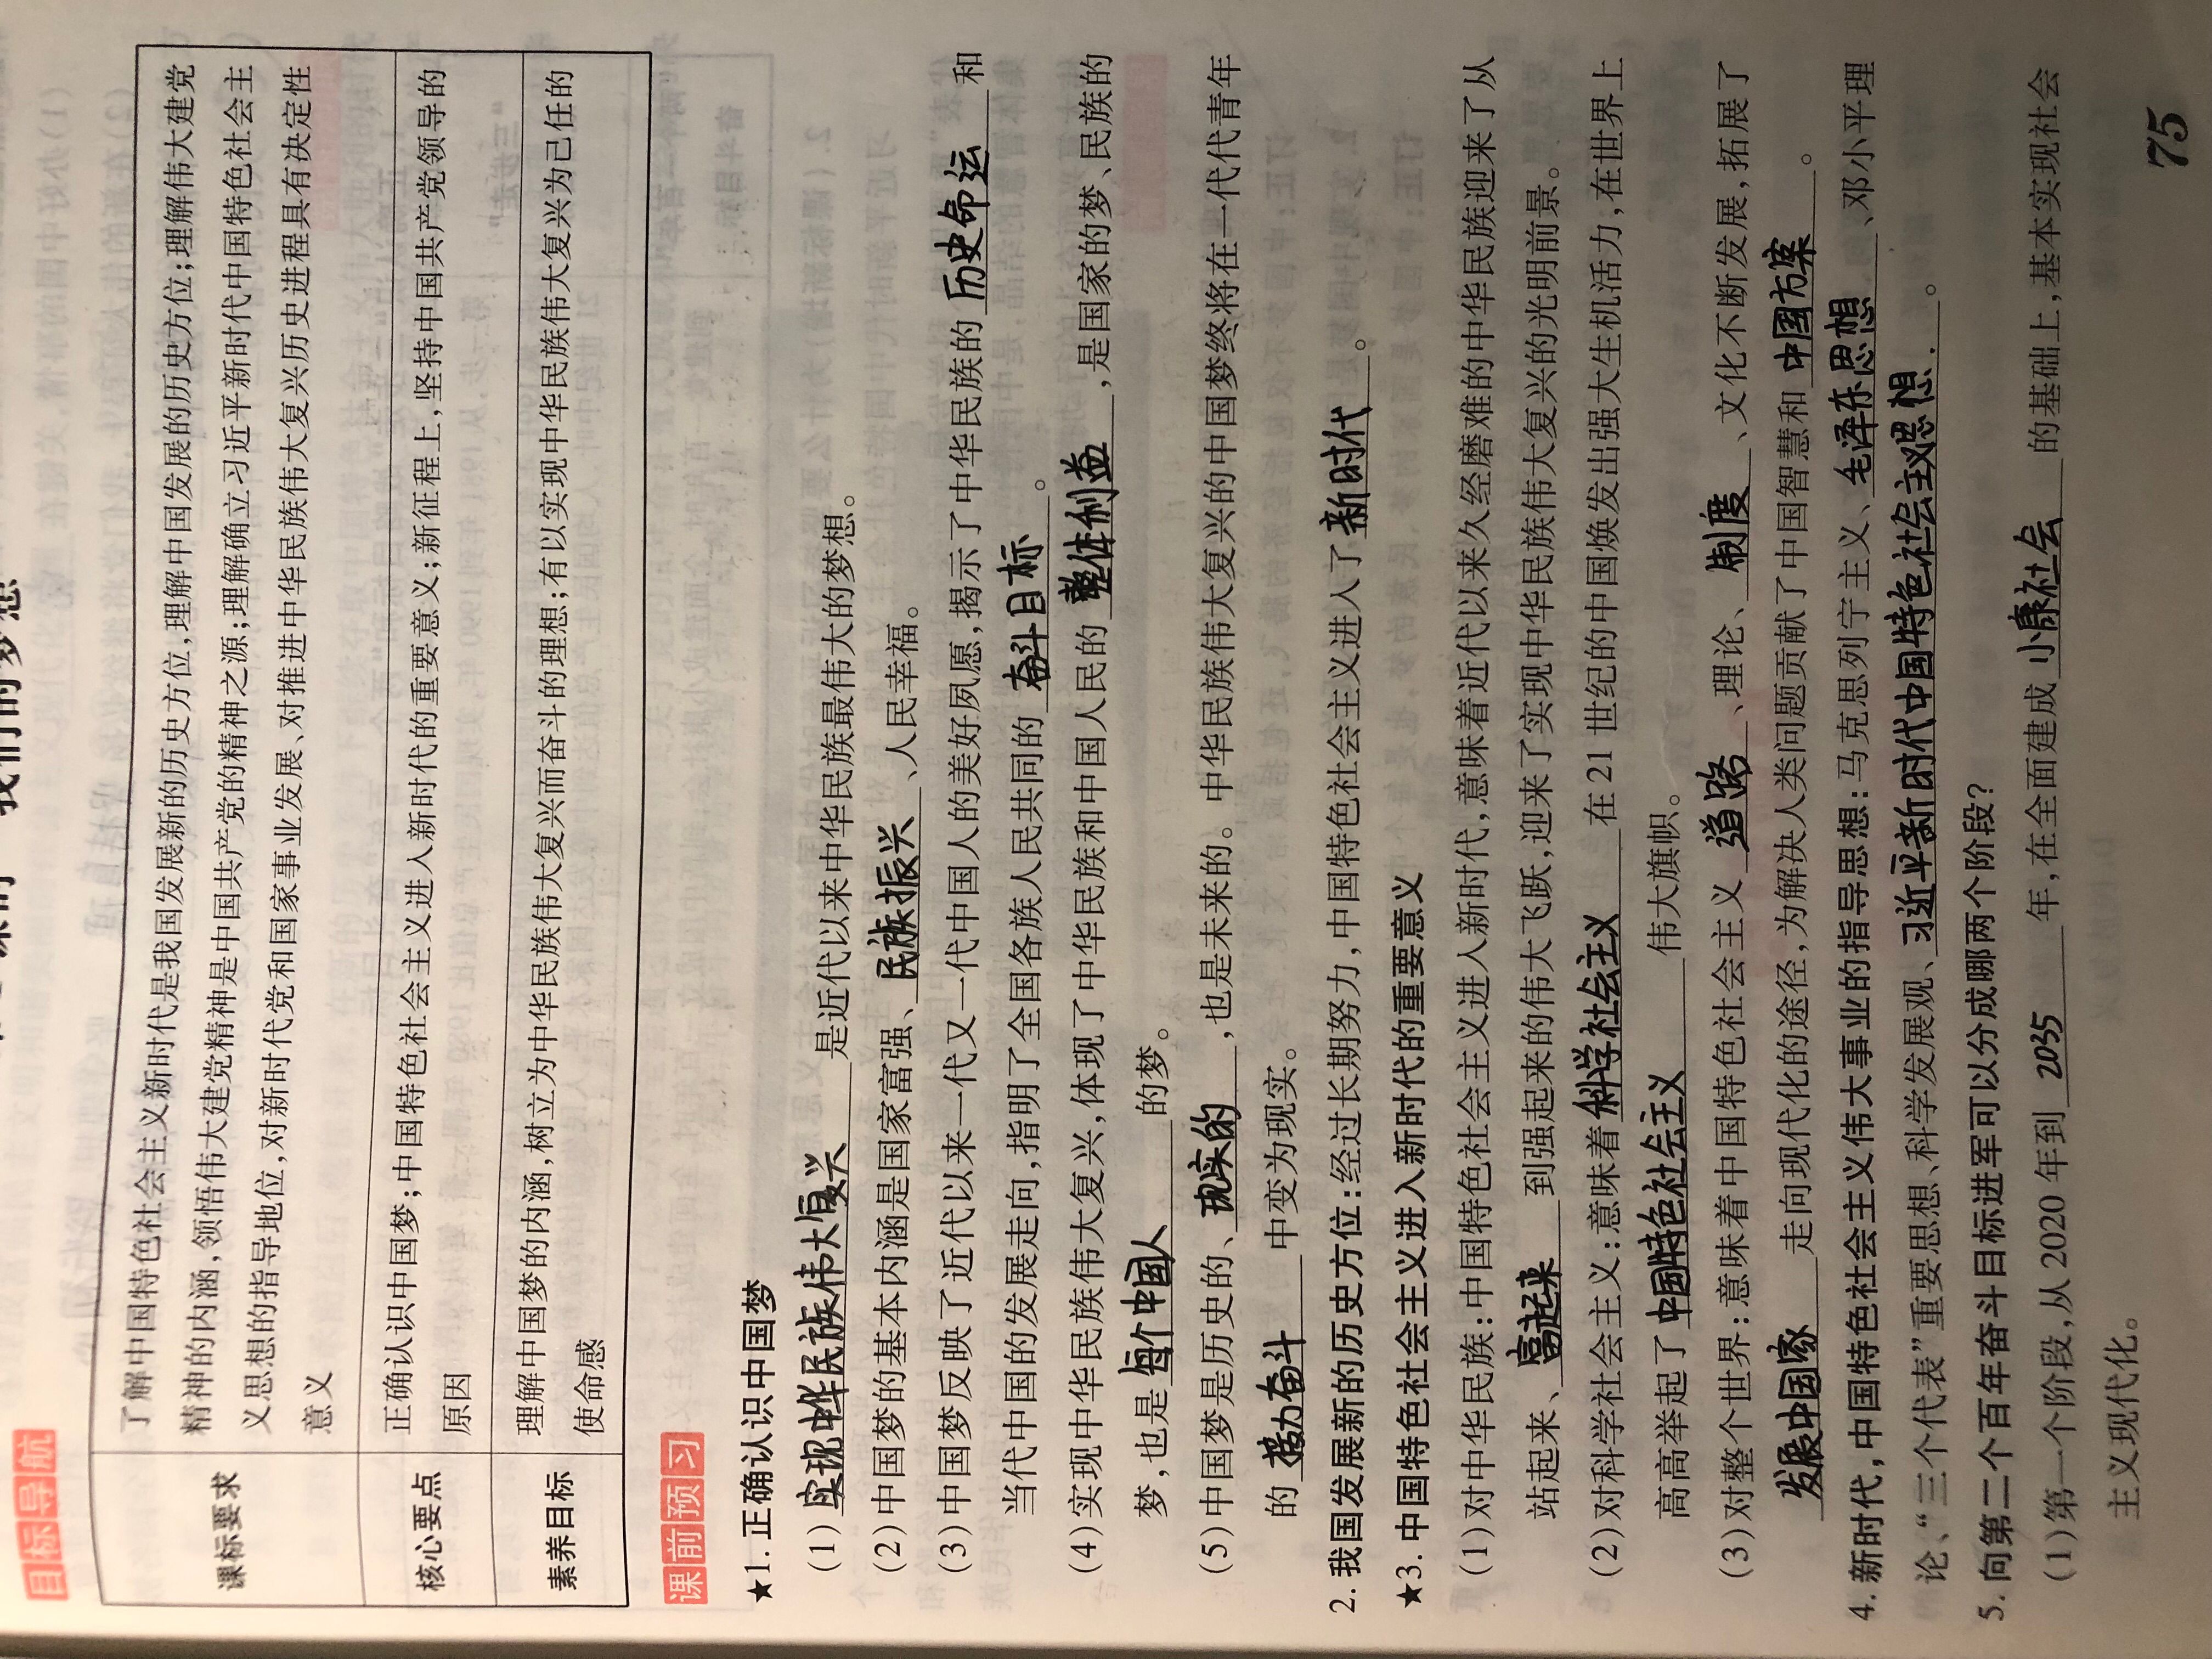 我们的梦想
目标导航
课标要求
了解中国特色社会主义新时代是我国发展新的历史方位,理解中国发展的历史方位;理解伟大建党
精神的内涵,领悟伟大建党精神是中国共产党的精神之源;理解确立习近平新时代中国特色社会主
义思想的指导地位,对新时代党和国家事业发展、对推进中华民族伟大复兴历史进程具有决定性
意义
核心要点
正确认识中国梦;中国特色社会主义进入新时代的重要意义;新征程上,坚持中国共产党领导的
原因
素养目标
理解中国梦的内涵,树立为中华民族伟大复兴而奋斗的理想;有以实现中华民族伟大复兴为己任的
使命感
课前预习
★1.正确认识中国梦
(1)实现中华民族伟大复兴是近代以来中华民族最伟大的梦想。
(2)中国梦的基本内涵是国家富强、民族振兴、人民幸福。
(3)中国梦反映了近代以来一代又一代中国人的美好夙愿,揭示了中华民族的历史命运和
当代中国的发展走向,指明了全国各族人民共同的奋斗目标。
(4)实现中华民族伟大复兴,体现了中华民族和中国人民的整体利益,是国家的梦、民族的
梦,也是每个中国人的梦。
(5)中国梦是历史的、现实的,也是未来的。中华民族伟大复兴的中国梦终将在一代代青年
的接力奋斗中变为现实。
2.我国发展新的历史方位:经过长期努力,中国特色社会主义进入了新时代。
★3.中国特色社会主义进入新时代的重要意义
(1)对中华民族:中国特色社会主义进入新时代,意味着近代以来久经磨难的中华民族迎来了从
站起来、富起来到强起来的伟大飞跃,迎来了实现中华民族伟大复兴的光明前景。
(2)对科学社会主义:意味着科学社会主义在21世纪的中国焕发出强大生机活力,在世界上
高高举起了中国特色社会主义伟大旗帜。
(3)对整个世界:意味着中国特色社会主义道路、理论、制度、文化不断发展,拓展了
发展中国家走向现代化的途径,为解决人类问题贡献了中国智慧和中国方案。
4.新时代,中国特色社会主义伟大事业的指导思想:马克思列宁主义、毛泽东思想、邓小平理
论、“三个代表”重要思想、科学发展观、习近平新时代中国特色社会主义思想。
5.向第二个百年奋斗目标进军可以分成哪两个阶段?
(1)第一个阶段,从2020年到2035年,在全面建成小康社会的基础上,基本实现社会
主义现代化。
75